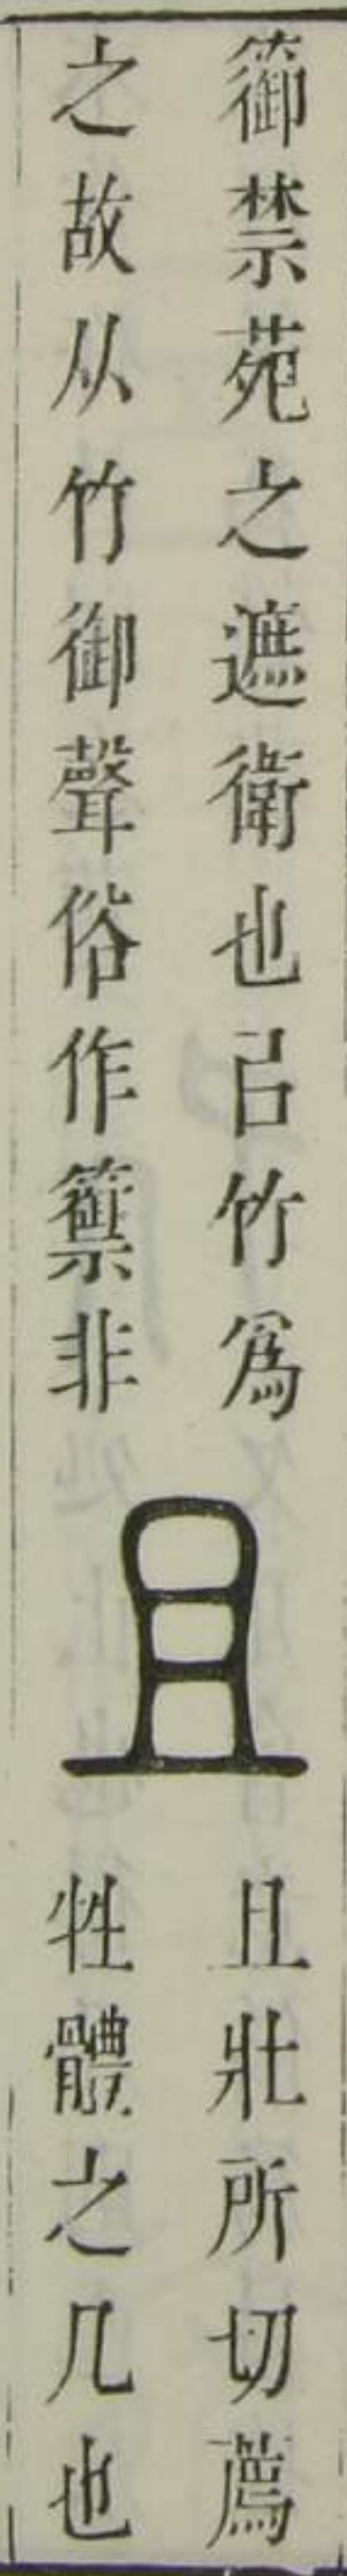 篽禁苑之遮衛也㠯竹爲
之故从竹御聲俗作籞非
且
且壯所切薦
牲體之几也